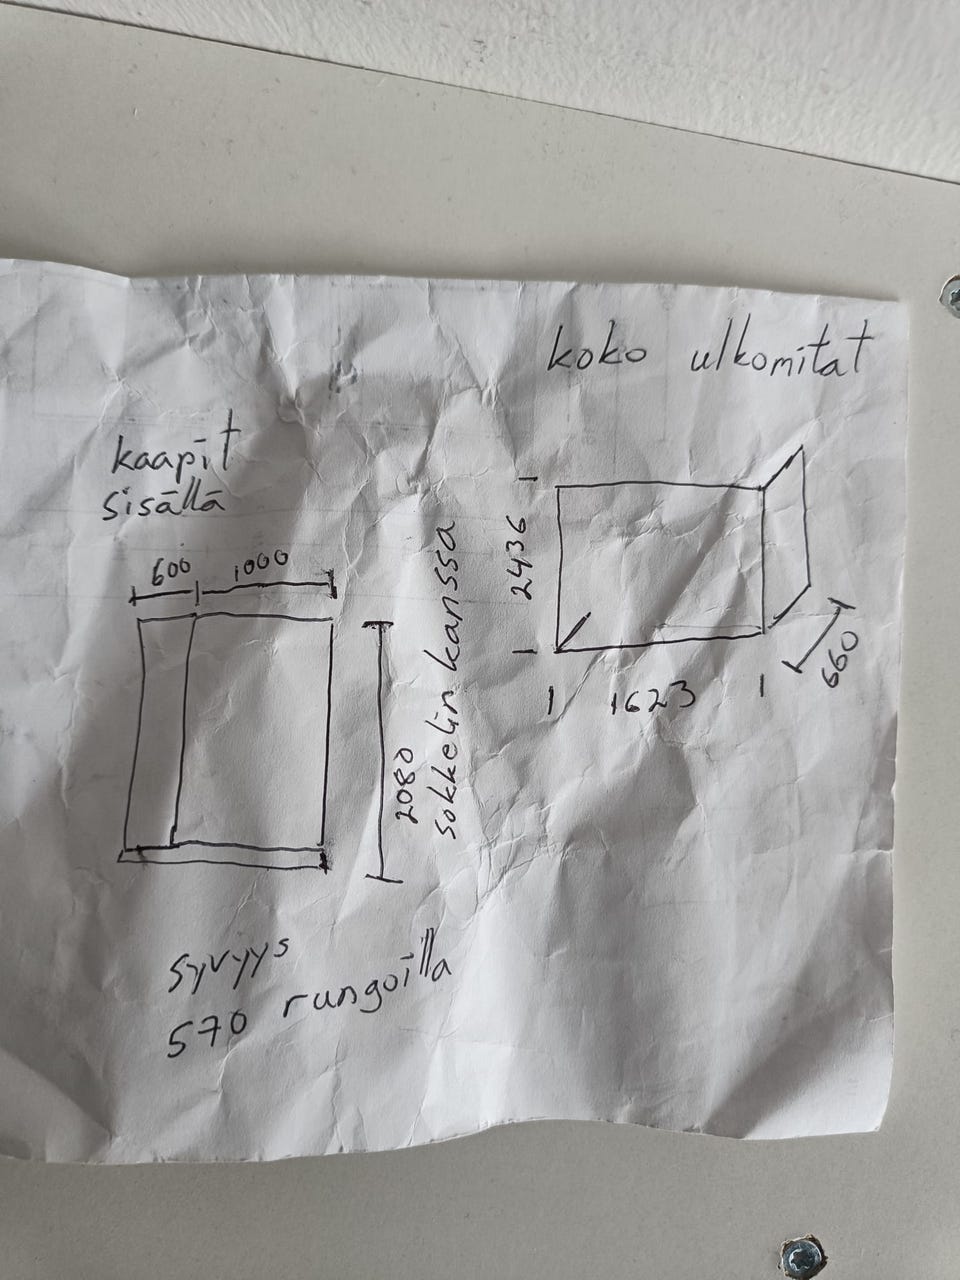 koko ulkomitat
kaapit
sisällä
600 1000
2080
sokkelin kanssa
2436
1623
660
syvyys
570 rungoilla